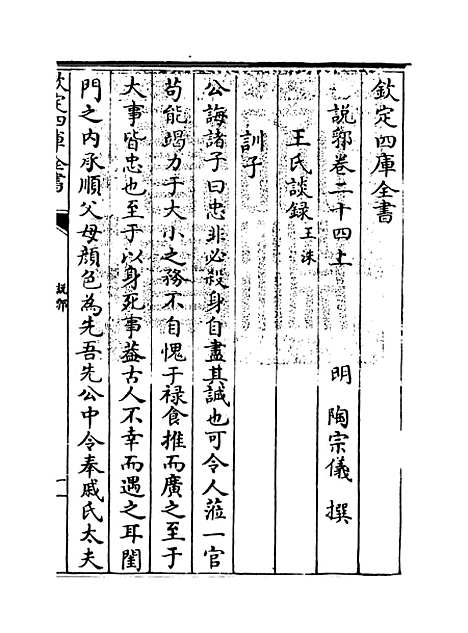 欽定四庫全書
說郛卷二十四上
明 陶宗儀 撰
王氏談録 王洙
訓子
公誨諸子曰忠非必殺身自盡其誠也可令人蒞一官
苟能竭力于大小之務不自愧于祿食推而廣之至于
大事皆忠也至于以身死事葢古人不幸而遇之耳閨
門之内承順父母顔色為先吾先公中令奉戚氏太夫
欽定四庫全書
說郛